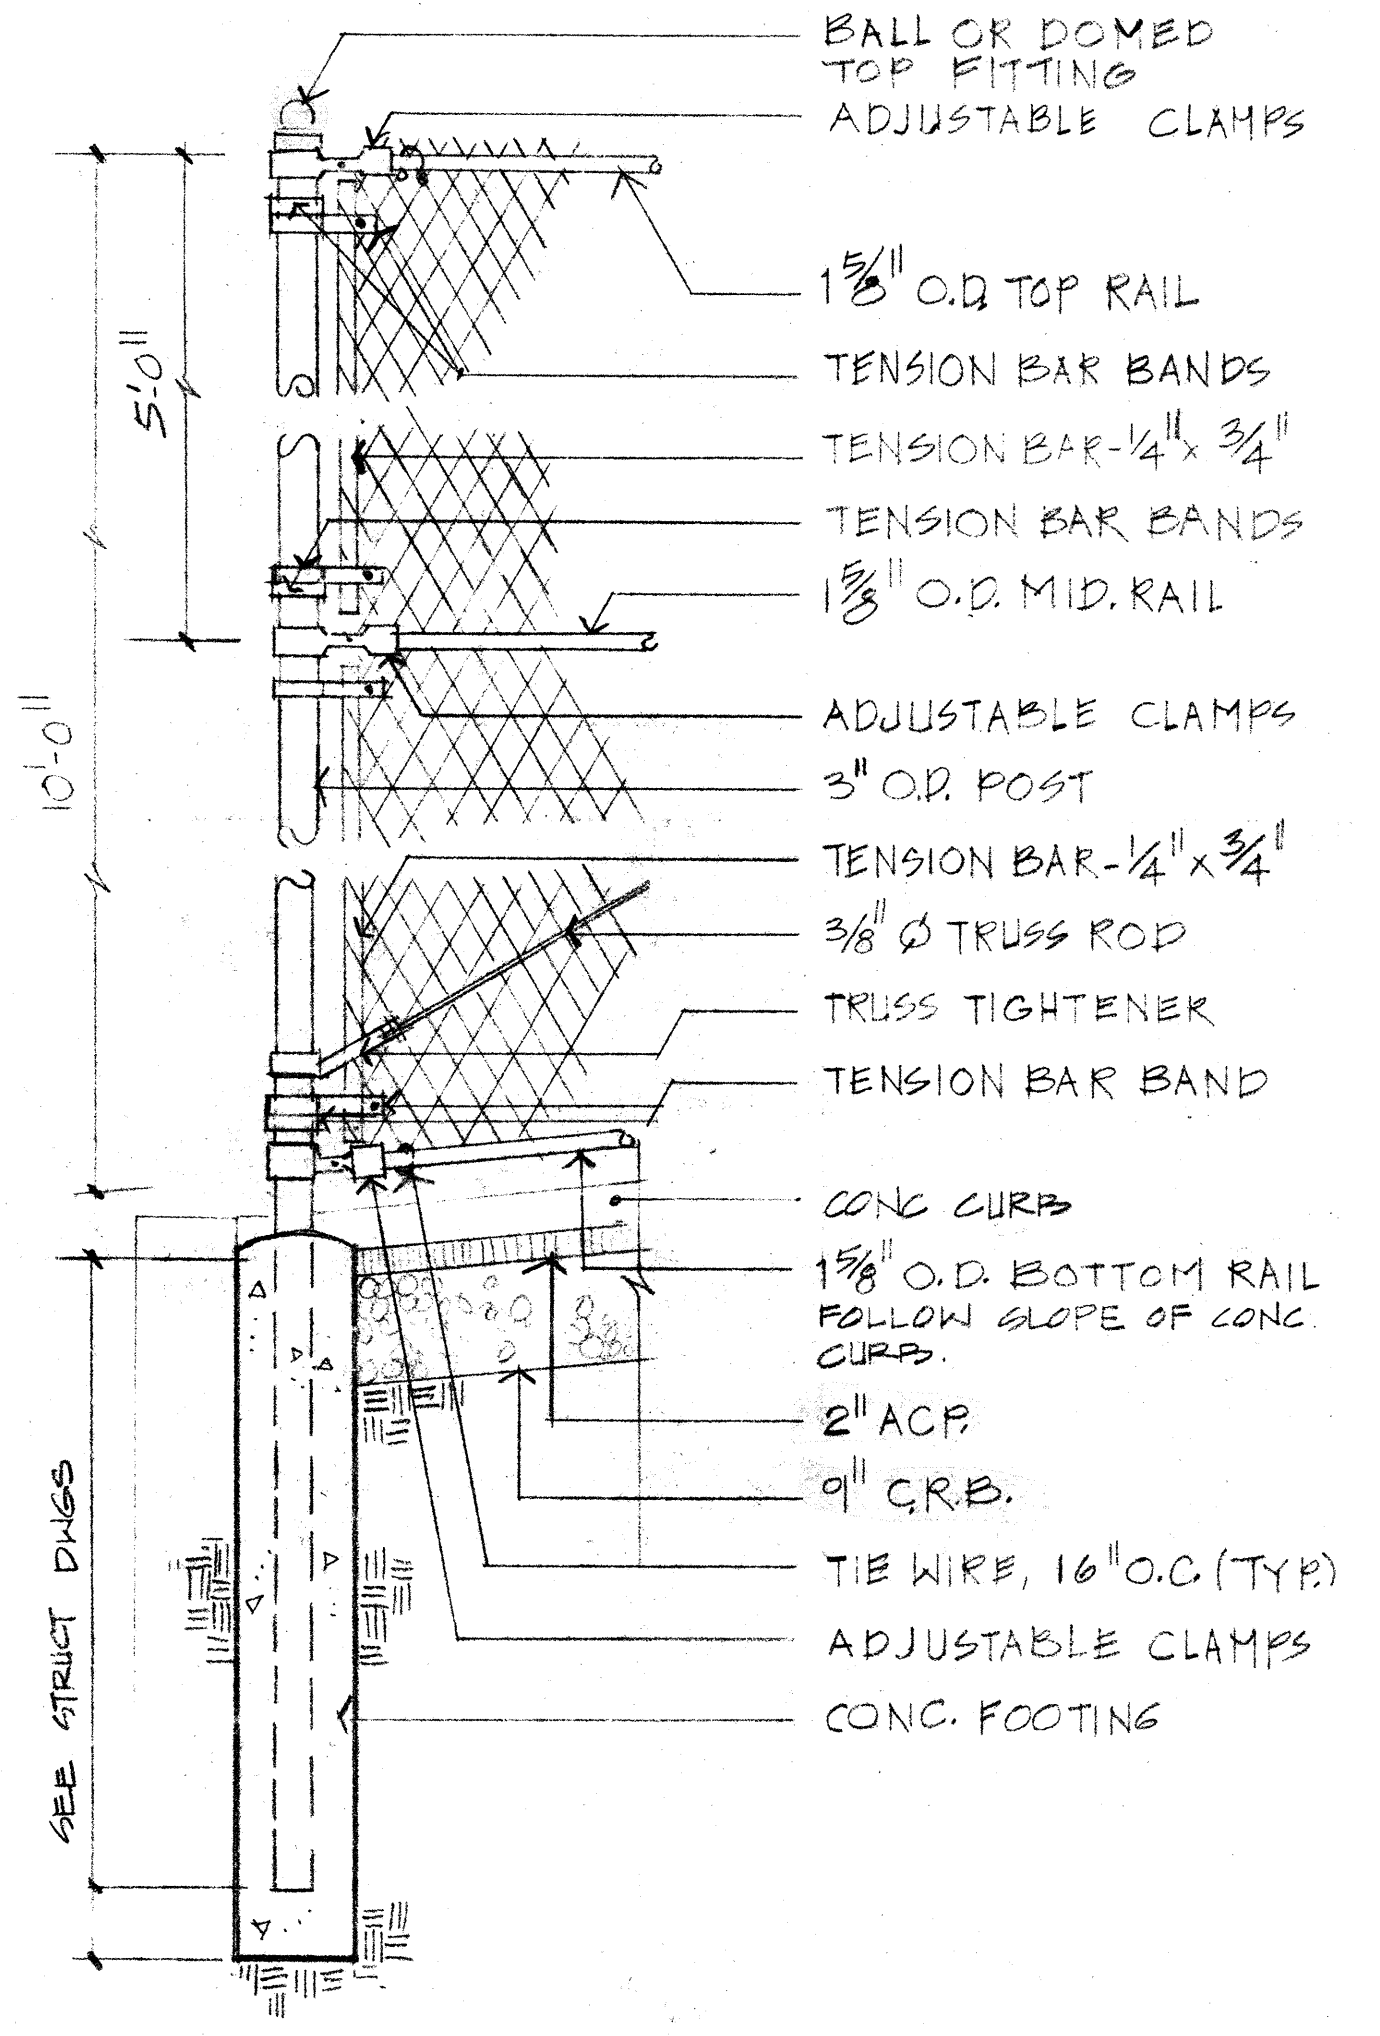 BALL OR DOMED
TOP FITTING
ADJUSTABLE CLAMPS
1 5/8" O.D. TOP RAIL
TENSION BAR BANDS
TENSION BAR-1/4" x 3/4"
TENSION BAR BANDS
1 5/8" O.D. MID. RAIL
ADJUSTABLE CLAMPS
3" O.D. POST
TENSION BAR-1/4" x 3/4"
3/8" Ø TRUSS ROD
TRUSS TIGHTENER
TENSION BAR BAND
CONC CURB
1 5/8" O.D. BOTTOM RAIL
FOLLOW SLOPE OF CONC.
CURB.
2" ACP.
9" C.R.B.
TIE WIRE, 16" O.C. (TYP.)
ADJUSTABLE CLAMPS
CONC. FOOTING
5'-0"
10'-0"
SEE STRUCT DWGS